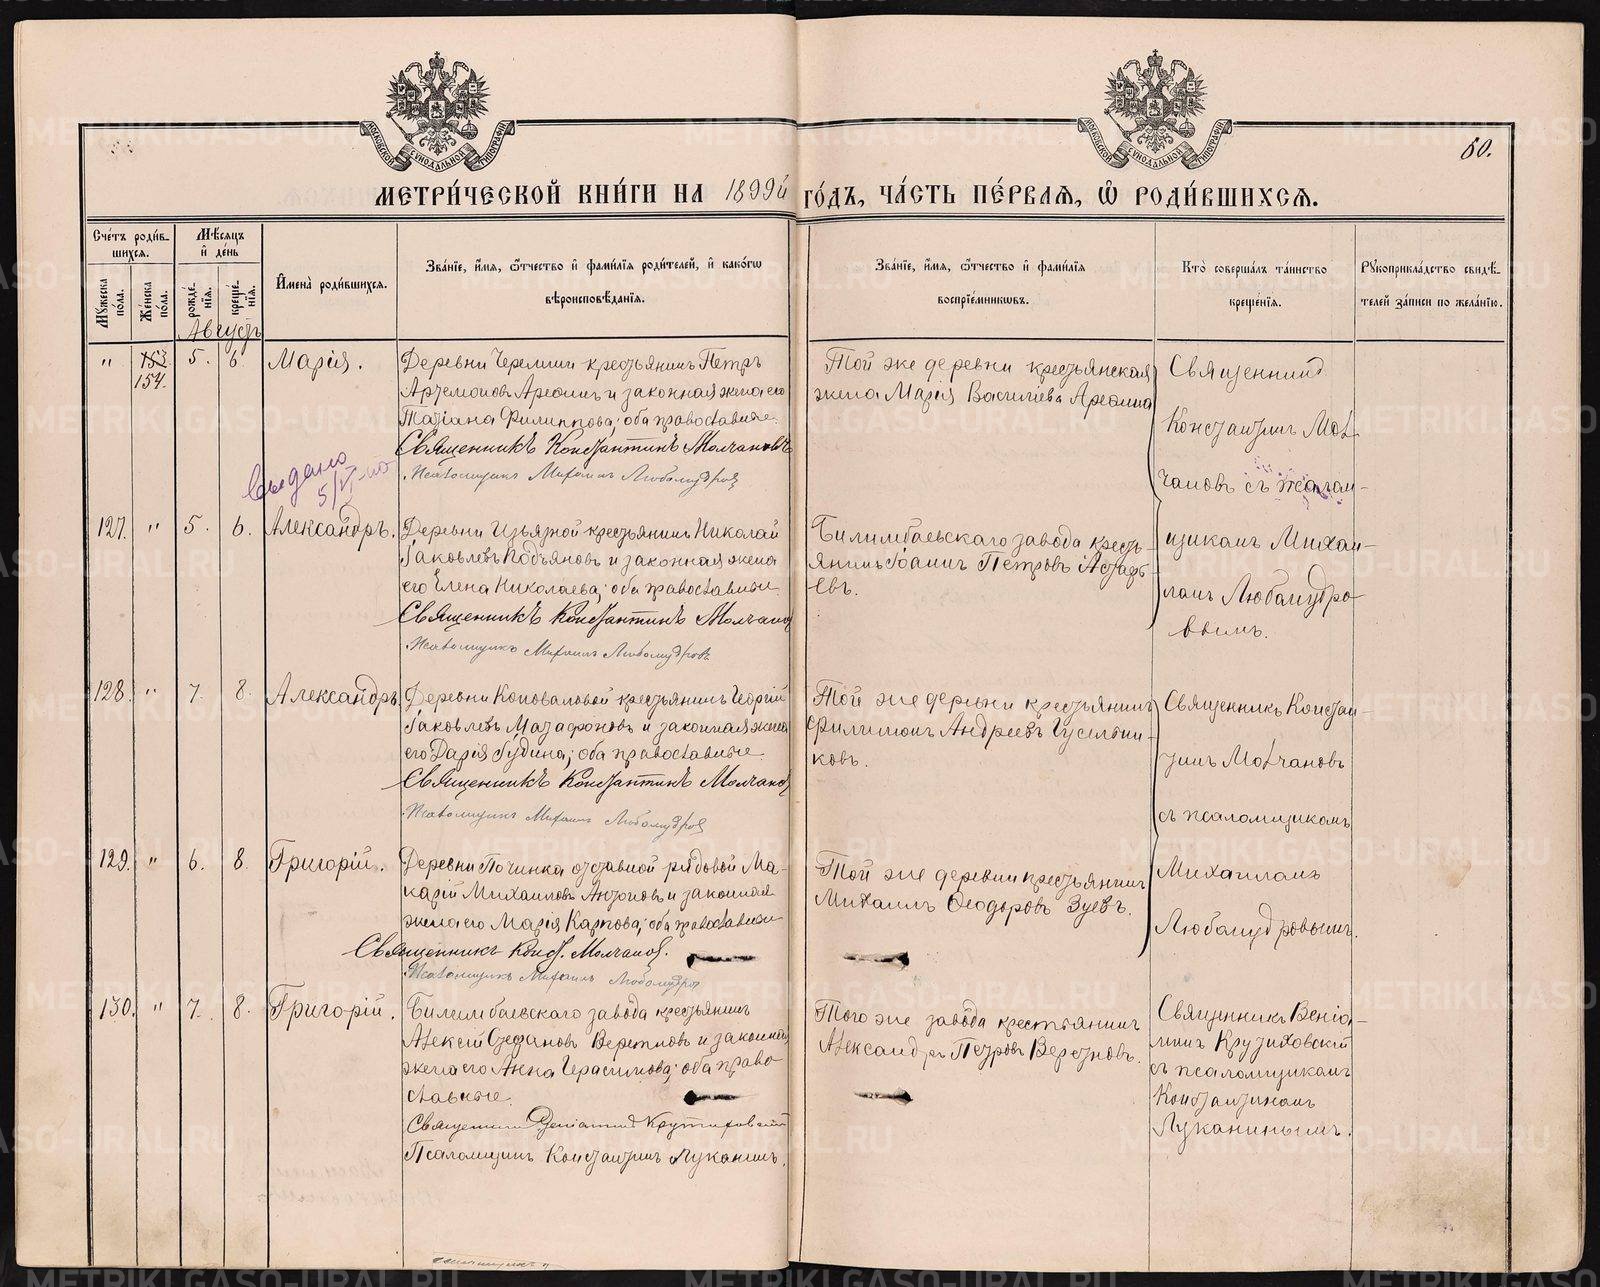 МОСКОВСКОЙ СѴНОДАЛЬНОЙ ТИПОГРАФІИ
МОСКОВСКОЙ СѴНОДАЛЬНОЙ ТИПОГРАФІИ
60.
МЕТРИ́ЧЕСКОЙ КНИ́ГИ НА 1899й ГО́ДЪ, ЧА́СТЬ ПЕ́РВАЯ, Ѡ҆ РОДИ́ВШИХСЯ.
Сче́тъ роди́в-
шихся.
Мѣ́сяцъ
и҆ де́нь
Мꙋ́жеска
по́ла.
Же́нска
по́ла.
рожде́-
нїя.
креще́-
нїя.
И҆мена̀ роди́вшихся.
Зва́нїе, и҆́мя, ѻ҆́тчество и҆ фами́лїя роди́телей, и҆ како́гѡ
вѣроисповѣ́данїя.
Зва́нїе, и҆́мя, ѻ҆́тчество и҆ фами́лїя
воспрїе́мниковъ.
Кто̀ соверша́лъ та́инство
креще́нїя.
Рꙋкоприкла́дство свидѣ́-
телей за́писи по жела́нїю.
Августъ
" 153 5. 6 Марія. Деревни Черемши крестьянинъ Петръ
154.
Артемоновъ Аре и законная жена его
Татіана Филиппова; оба православные.
Священникъ Константинъ Молчановъ
Псаломщикъ Михаилъ Любомудровъ
Той же деревни крестьянская
жена Марія Васильева
Священникъ
Константинъ Мол-
чановъ съ псалом-
щикомъ Михаи-
ломъ Любомудро-
вымъ.
Выдано
127. " 5. 6. Александръ. Деревни Извязной крестьянинъ Николай
Іаковлевъ Подъяновъ и законная жена
его Елена Николаева; оба православные
Священникъ Константинъ Молчановъ
Псаломщикъ Михаилъ Любомудровъ
Билимбаевскаго завода кресть-
янинъ Іоаннъ Петровъ Астафь-
евъ.
128. " 7. 8. Александръ Деревни Коноваловой крестьянинъ Георгій
Іаковлевъ Матафоновъ и законная жена
его Дарія Іудина; оба православные
Священникъ Константинъ Молчановъ
Псаломщикъ Михаилъ Любомудровъ
Той же деревни крестьянинъ
Филимонъ Андреевъ Гусельни-
ковъ.
Священникъ Констан-
тинъ Молчановъ
съ псаломщикомъ
Михаиломъ
Любомудровымъ.
129. " 6. 8. Григорій. Деревни Починка отставной рядовой Ма-
карій Михаиловъ Антоновъ и законная
жена его Марія Карпова; оба православные
Священникъ Конст. Молчановъ.
Псаломщикъ Михаилъ Любомудровъ
Той же деревни крестьянинъ
Михаилъ Ѳеодоровъ Зуевъ.
130. " 7. 8. Григорій. Билимбаевскаго завода крестьянинъ
Алексій Стефановъ и законная
жена его Анна Герасимова; оба право-
славные.
Священникъ Веніаминъ Крутиховскій
Псаломщикъ Константинъ Луканинъ.
Того же завода крестьянинъ
Александръ Петровъ
Священникъ Веніа-
минъ Крутиховскій
съ псаломщикомъ
Константиномъ
Луканинымъ.